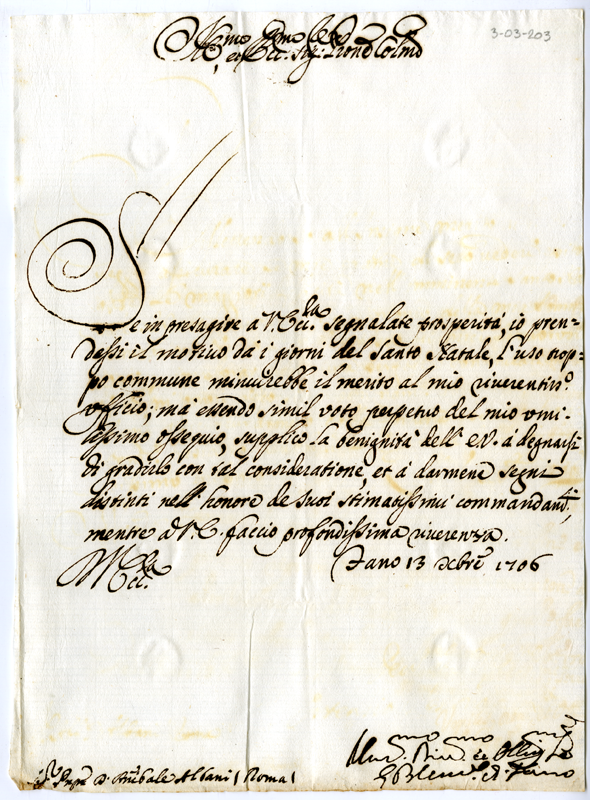 3-03-203
Ill.mo
et Ecc. Sig. Prone Colmo
Se in presagire à V. Ecc.za segnalate prosperità, io pren=
dessi il motivo dà i giorni del Santo Natale, l'uso trop=
po commune minuirebbe il merito al mio riverentiss.o
officio; mà essendo simil voto perpetuo del mio umi=
lissimo ossequio, supplico la benignità dell' E.V. à degnarsi
di gradirlo con tal consideratione, et à darmene segni
distinti nell' honore de suoi stimatissimi commandam.ti,
mentre à V. E. faccio profondissima riverenza.
Fano 13 Xbre 1706
V. Ecc.za
D. Anibale Albani / Roma /
Um. Div. et Obl.
di Fano